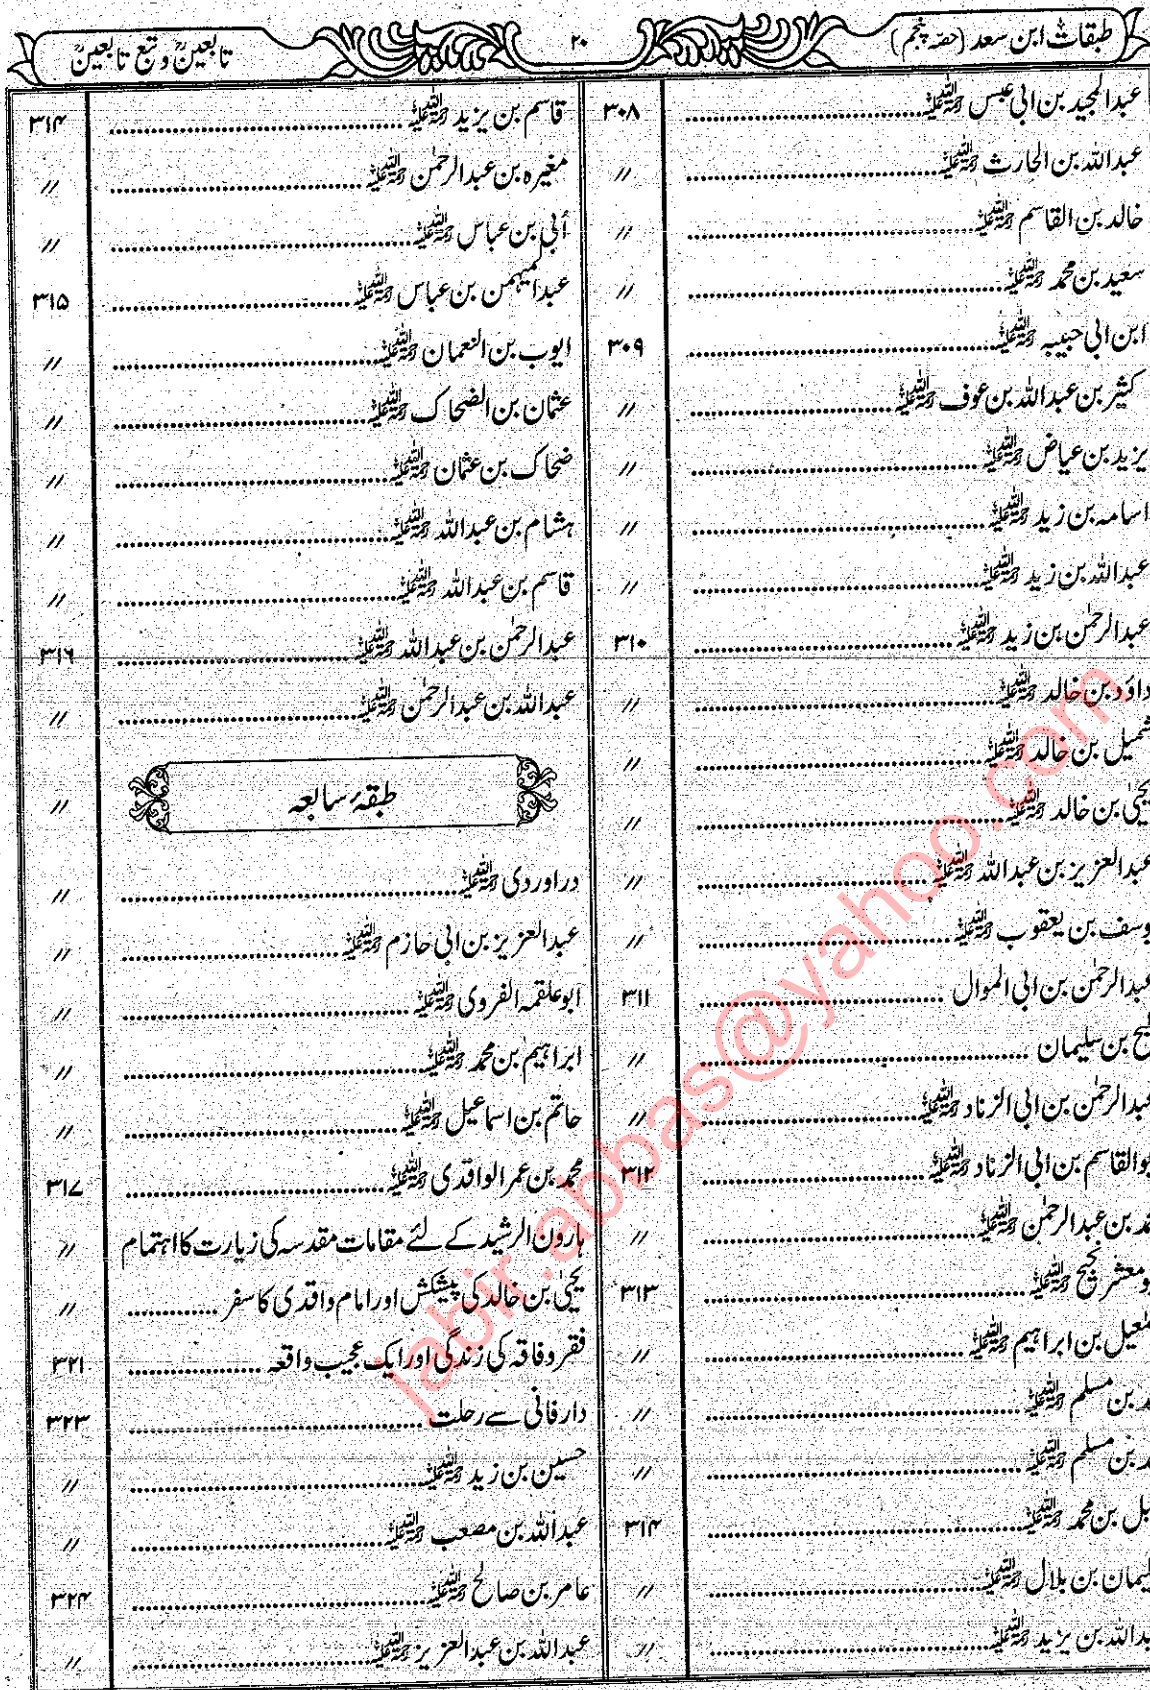 طبقات ابن سعد (حصہ پنجم)
۲۰
تابعینؒ و تبع تابعینؒ
عبدالمجید بن ابی عبس رحمۃ اللہ علیہ ۳۰۸
عبداللہ بن الحارث رحمۃ اللہ علیہ //
خالد بن القاسم رحمۃ اللہ علیہ //
سعید بن محمد رحمۃ اللہ علیہ //
ابن ابی حبیبہ رحمۃ اللہ علیہ ۳۰۹
کثیر بن عبداللہ بن عوف رحمۃ اللہ علیہ //
یزید بن عیاض رحمۃ اللہ علیہ //
اسامہ بن زید رحمۃ اللہ علیہ //
عبداللہ بن زید رحمۃ اللہ علیہ //
عبدالرحمٰن بن زید رحمۃ اللہ علیہ ۳۱۰
داؤد بن خالد رحمۃ اللہ علیہ //
شمیل بن خالد رحمۃ اللہ علیہ //
یحییٰ بن خالد رحمۃ اللہ علیہ //
عبدالعزیز بن عبداللہ رحمۃ اللہ علیہ //
وسف بن یعقوب رحمۃ اللہ علیہ //
عبدالرحمٰن بن ابی الموال ۳۱۱
بن سلیمان //
عبدالرحمٰن بن ابی الزناد رحمۃ اللہ علیہ //
بوالقاسم بن ابی الزناد رحمۃ اللہ علیہ ۳۱۲
بن عبدالرحمٰن رحمۃ اللہ علیہ //
ومعشر نجیح رحمۃ اللہ علیہ ۳۱۳
معیل بن ابراہیم رحمۃ اللہ علیہ //
بن مسلم رحمۃ اللہ علیہ //
بن مسلم رحمۃ اللہ علیہ //
بن محمد رحمۃ اللہ علیہ ۳۱۴
لیمان بن بلال رحمۃ اللہ علیہ //
بداللہ بن یزید رحمۃ اللہ علیہ //
قاسم بن یزید رحمۃ اللہ علیہ ۳۱۴
مغیرہ بن عبدالرحمٰن رحمۃ اللہ علیہ //
اُبی بن عباس رحمۃ اللہ علیہ //
عبدالمہیمن بن عباس رحمۃ اللہ علیہ ۳۱۵
ایوب بن النعمان رحمۃ اللہ علیہ //
عثمان بن الضحاک رحمۃ اللہ علیہ //
ضحاک بن عثمان رحمۃ اللہ علیہ //
ہشام بن عبداللہ رحمۃ اللہ علیہ //
قاسم بن عبداللہ رحمۃ اللہ علیہ //
عبدالرحمٰن بن عبداللہ رحمۃ اللہ علیہ ۳۱۶
عبداللہ بن عبدالرحمٰن رحمۃ اللہ علیہ //
طبقۂ سابعہ //
دراوردی رحمۃ اللہ علیہ //
عبدالعزیز بن ابی حازم رحمۃ اللہ علیہ //
ابوعلقمہ الفروی رحمۃ اللہ علیہ //
ابراہیم بن محمد رحمۃ اللہ علیہ //
حاتم بن اسماعیل رحمۃ اللہ علیہ //
محمد بن عمر الواقدی رحمۃ اللہ علیہ ۳۱۷
ہارون الرشید کے لئے مقامات مقدسہ کی زیارت کا اہتمام //
یحییٰ بن خالد کی پیشکش اور امام واقدی کا سفر //
فقر وفاقہ کی زندگی اور ایک عجیب واقعہ ۳۲۱
دار فانی سے رحلت ۳۲۳
حسین بن زید رحمۃ اللہ علیہ //
عبداللہ بن مصعب رحمۃ اللہ علیہ //
عامر بن صالح رحمۃ اللہ علیہ ۳۲۴
عبداللہ بن عبدالعزیز رحمۃ اللہ علیہ //
jabir.abbas@yahoo.com